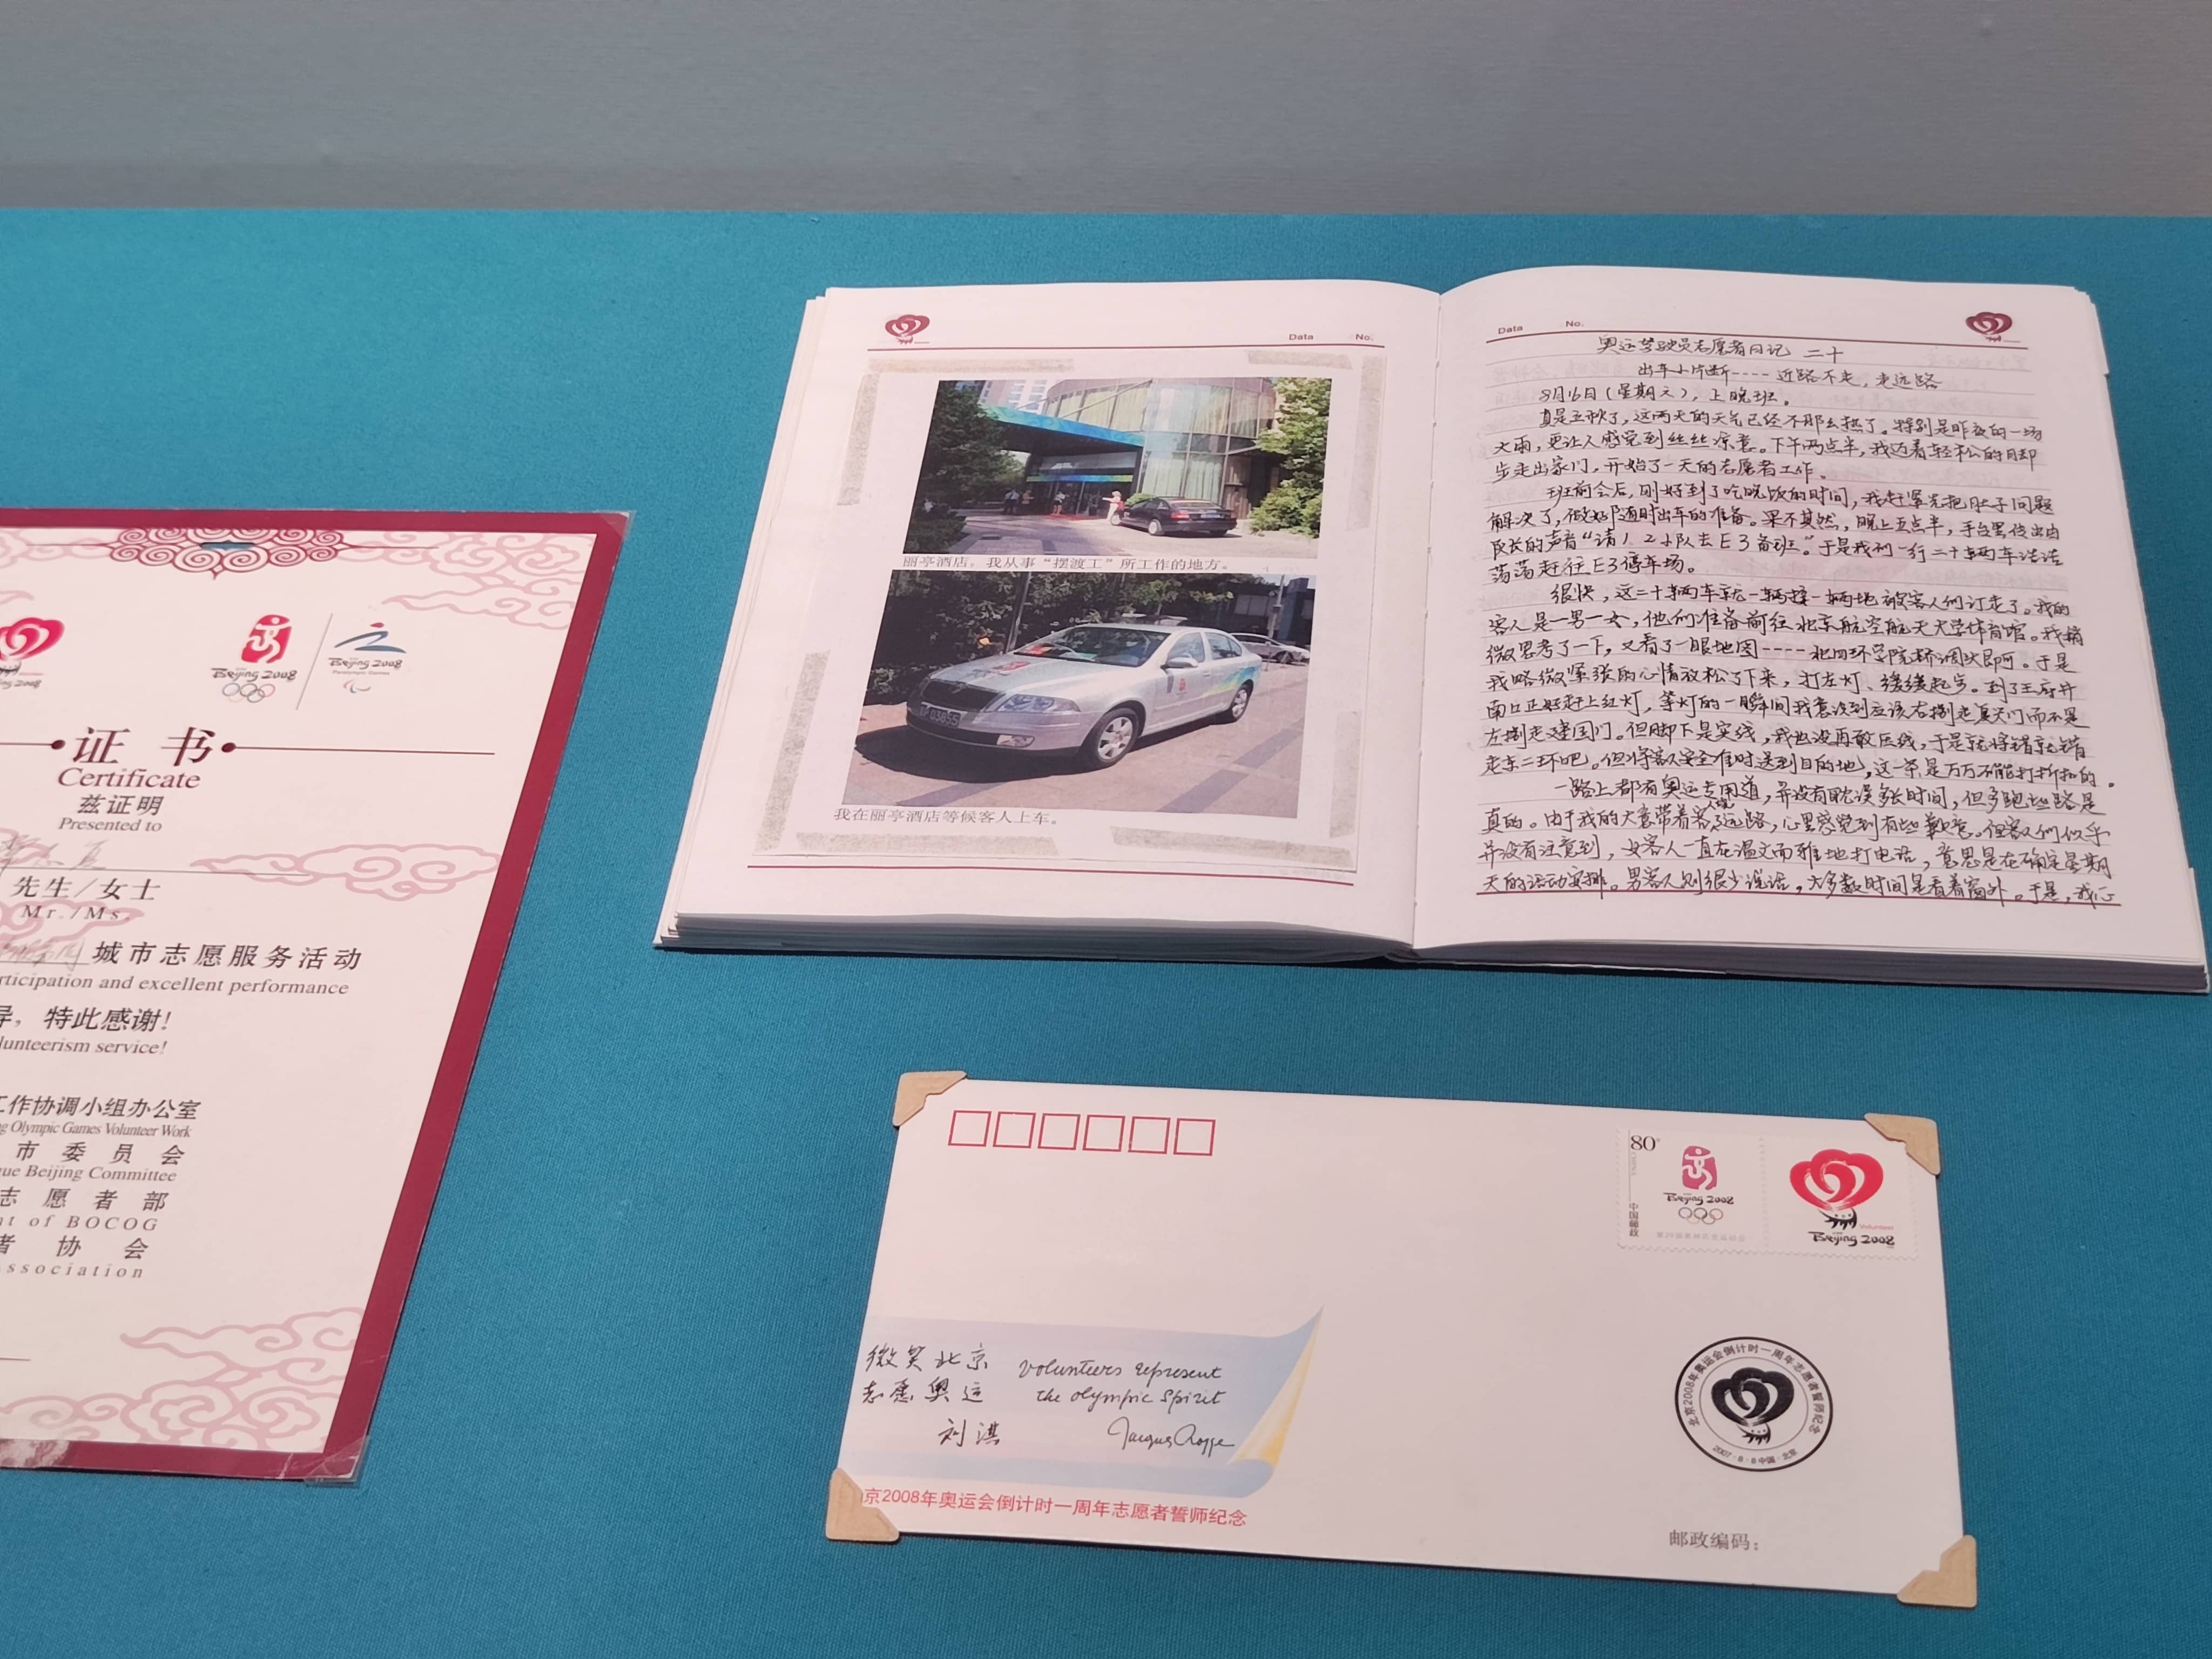 Beijing 2008
Beijing 2008
Paralympic Games
证 书
Certificate
兹证明
Presented to
先生/女士
Mr./Ms.
城市志愿服务活动
rticipation and excellent performance
特此感谢！
lunteerism service!
工作协调小组办公室
g Olympic Games Volunteer Work
市委员会
ue Beijing Committee
志愿者部
nt of BOCOG
者协会
ssociation
Data No.
丽亭酒店。我从事“摆渡工”所工作的地方。
我在丽亭酒店等候客人上车。
Data No.
奥运驾驶员志愿者日记 二十
出车小片断----近路不走，走远路
8月16日（星期六），上晚班。
真是立秋了，这两天的天气已经不那么热了。特别是昨夜的一场
大雨，更让人感觉到丝丝凉意。下午两点半，我迈着轻松的脚
步走出家门，开始了一天的志愿者工作。
班前会后，刚好到了吃晚饭的时间，我赶紧先把肚子问题
解决了，做好随时出车的准备。果不其然，晚上五点半，手台里传出白
队长的声音“请1、2小队去E3备班。”于是我们一行二十辆车浩浩
荡荡赶往E3停车场。
很快，这二十辆车就一辆接一辆地被客人们订走了。我的
客人是一男一女，他们准备前往北京航空航天大学体育馆。我稍
微思考了一下，又看了一眼地图----北四环学院桥调头即可。于是
我略微紧张的心情放松了下来，打左灯、缓缓起步。到了王府井
南口正好赶上红灯，等灯的一瞬间我意识到应该右拐走复兴门而不是
左拐走建国门。但脚下是实线，我也没再敢压线，于是就将错就错
走东二环吧。但将客人安全准时送到目的地，这一条是万万不能打折扣的。
一路上都有奥运专用道，并没有耽误多长时间，但多跑些路是
真的。由于我的大意带着客人绕远路，心里感觉到有些歉意。但客人们似乎
并没有注意到，女客人一直在温文而雅地打电话，意思是在确定星期
天的活动安排。男客人则很少说话，大多数时间是看着窗外。于是，我心
80分
中国邮政
Beijing 2008
第29届奥林匹克运动会
Volunteer
Beijing 2008
微笑北京
志愿奥运
刘淇
Volunteers represent
the Olympic Spirit
Jacques Rogge
京2008年奥运会倒计时一周年志愿者誓师纪念
北京2008年奥运会倒计时一周年志愿者誓师纪念
2007·8·8 中国·北京
邮政编码：